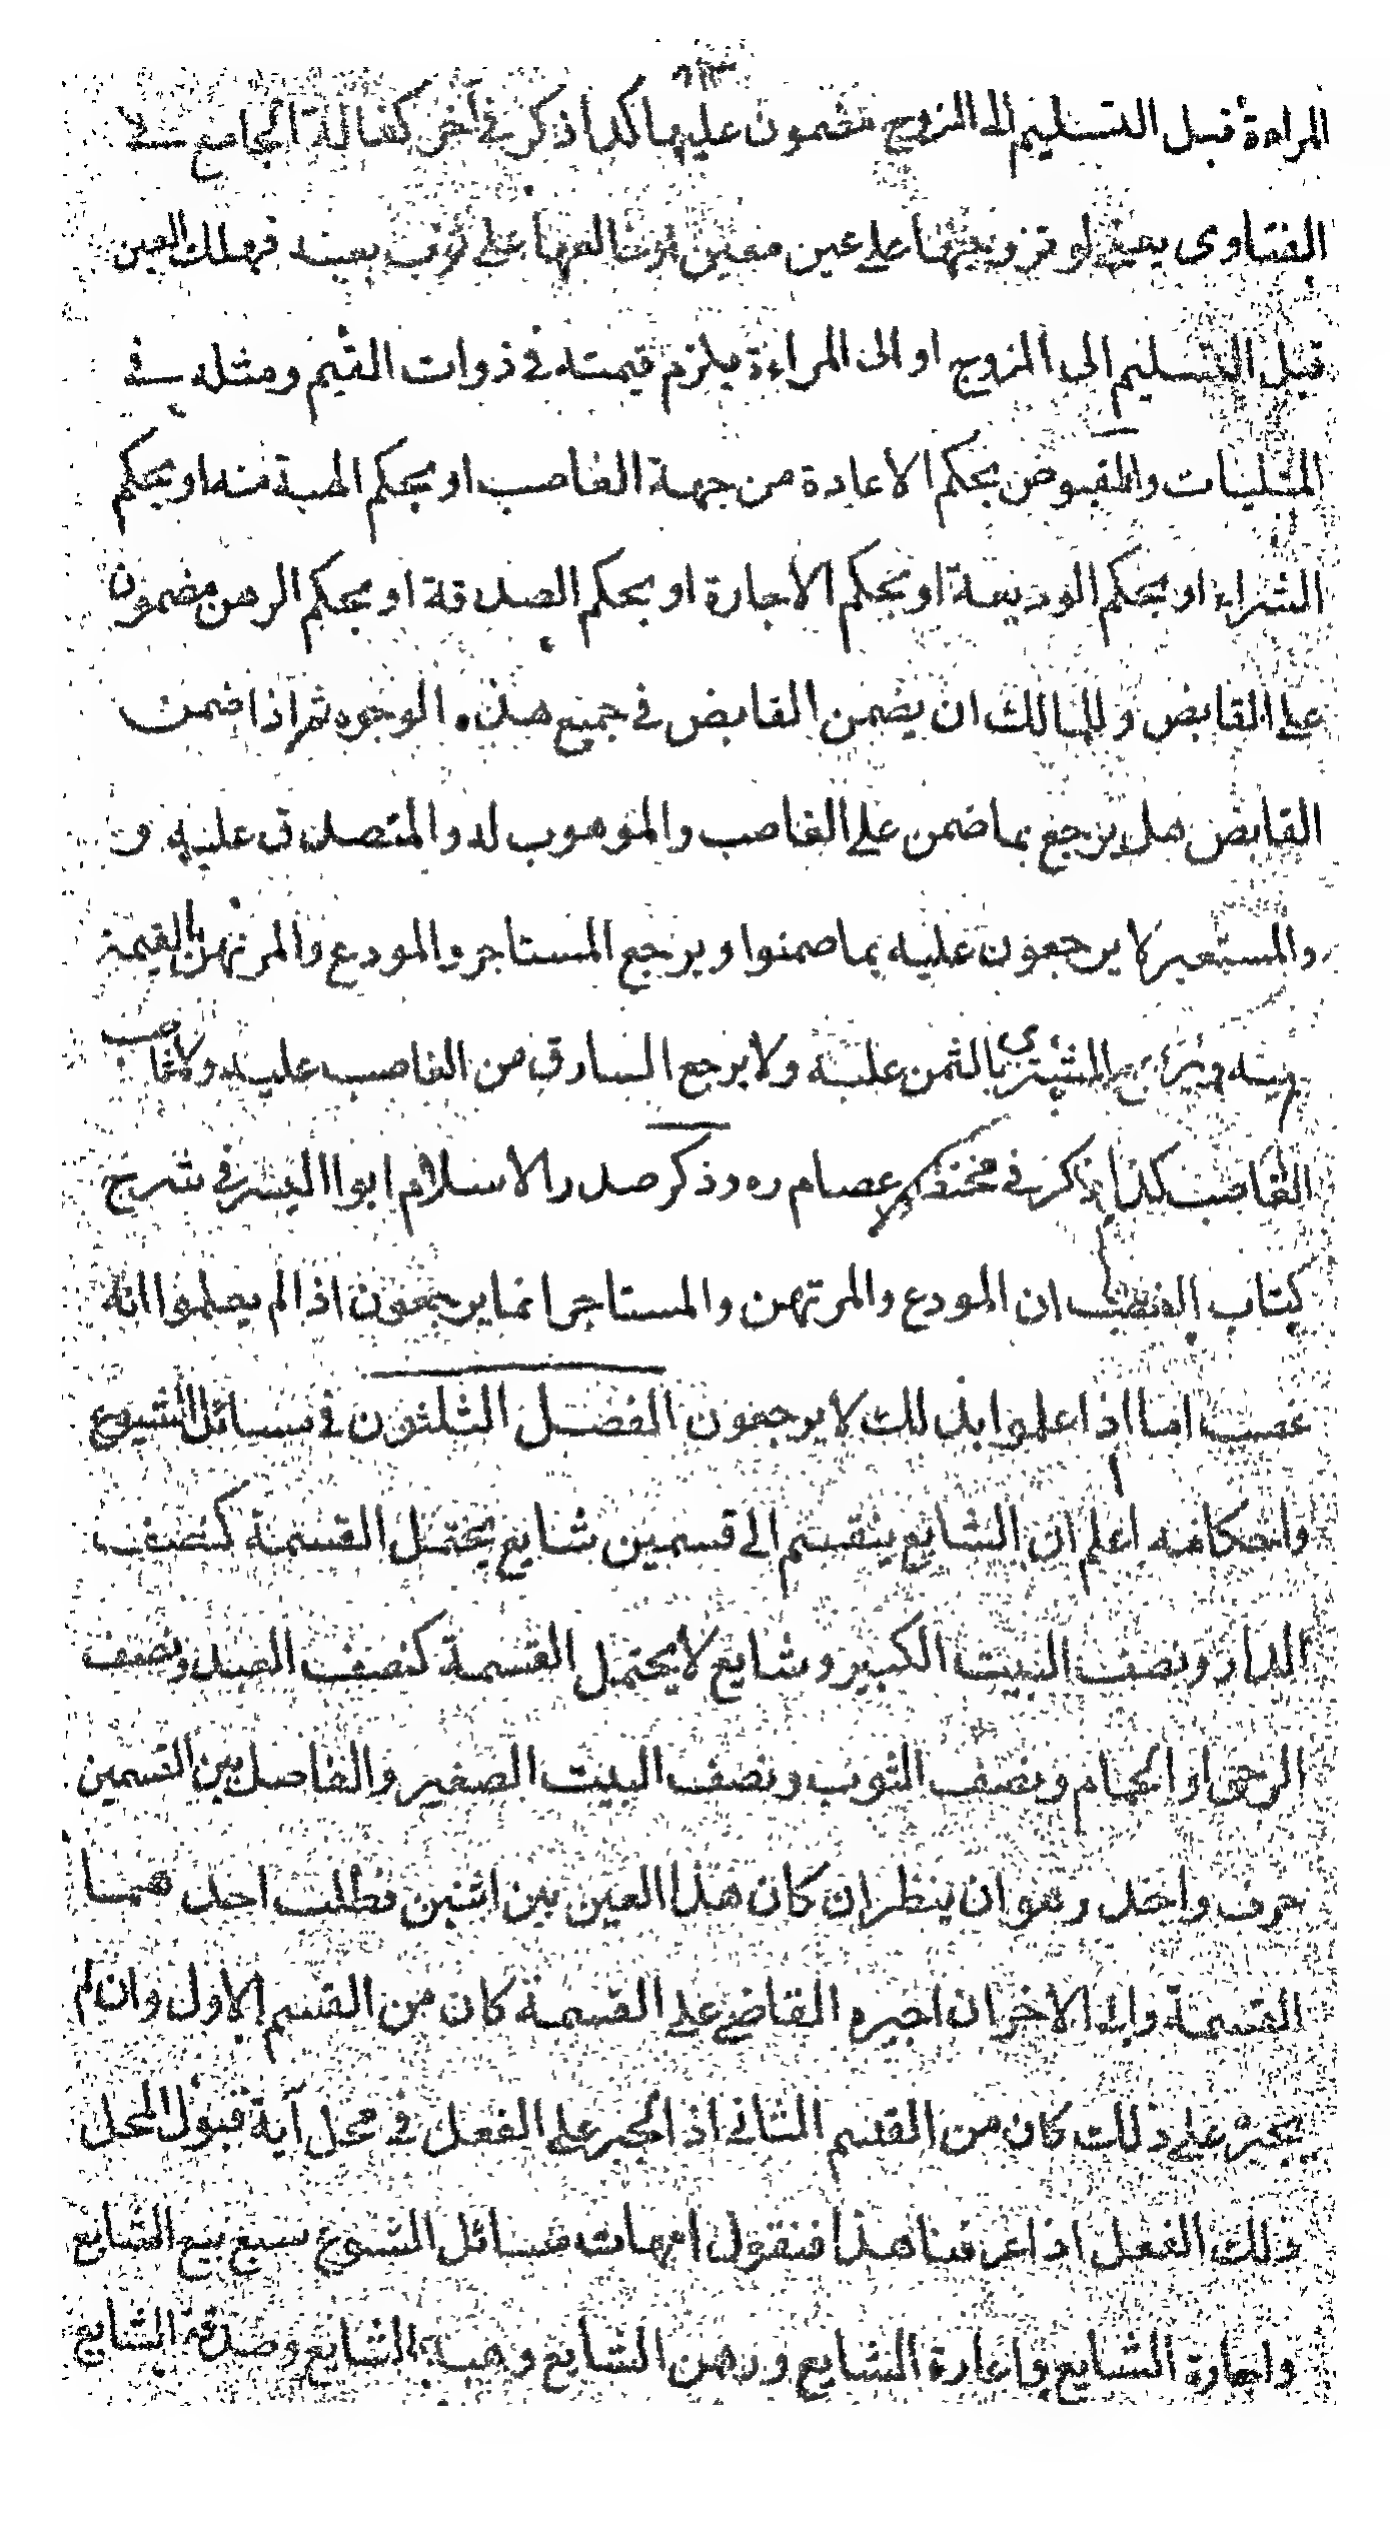 المراءة قبل التسليم الى الزوج مضمون عليها كذا ذكر في آخر كفالة الجامع في
الفتاوى لو تزوجها على عين معين او خالعها على ثوب بعينه فهلك العين
قبل التسليم الى الزوج او الى المراءة يلزم قيمته في ذوات القيم ومثله في
المثليات والمقبوض بحكم الاعادة من جهة الغاصب او بحكم الهبة منه او بحكم
الشراء او بحكم الوديعة او بحكم الاجارة او بحكم الصدقة او بحكم الرهن مضمون
على القابض وللمالك ان يضمن القابض في جميع هذه الوجوه ثم اذا ضمن
القابض هل يرجع بما ضمن على الغاصب والموهوب له والمتصدق عليه و
والمستعير لا يرجعون عليه بما ضمنوا ويرجع المستاجر والمودع والمرتهن بالقيمة
المشترى بالثمن عليه ولا يرجع السارق من الغاصب عليه ولا غاصب
الغاصب كذا ذكر في مختصر عصام ره وذكر صدر الاسلام ابوا اليسر في شرح
كتاب الغصب ان المودع والمرتهن والمستاجر انما يرجعون اذا لم يعلموا انه
غصب اما اذا علموا بذلك لا يرجعون الفصل الثلثون في مسائل الشيوع
واحكامه اعلم ان الشايع ينقسم الى قسمين شايع يحتمل القسمة كنصف
الدار ونصف البيت الكبير وشايع لا يحتمل القسمة كنصف العبد ونصف
الرحى او الحمام ونصف الثوب ونصف البيت الصغير والفاصل بين القسمين
حرف واحد وهو ان ينظر ان كان هذا العين بين اثنين فطلب احد هما
القسمة وابى الاخر ان اجبره القاضي على القسمة كان من القسم الاول وان لم
يجبر على ذلك كان من القسم الثاني اذ الجبر على الفعل في محل آية قبول المحل
ذلك الفعل اذا عرفنا هذا فنقول امهات مسائل الشيوع سبع بيع الشايع
واجارة الشايع واعارة الشايع ورهن الشايع وهبة الشايع وصدقة الشايع